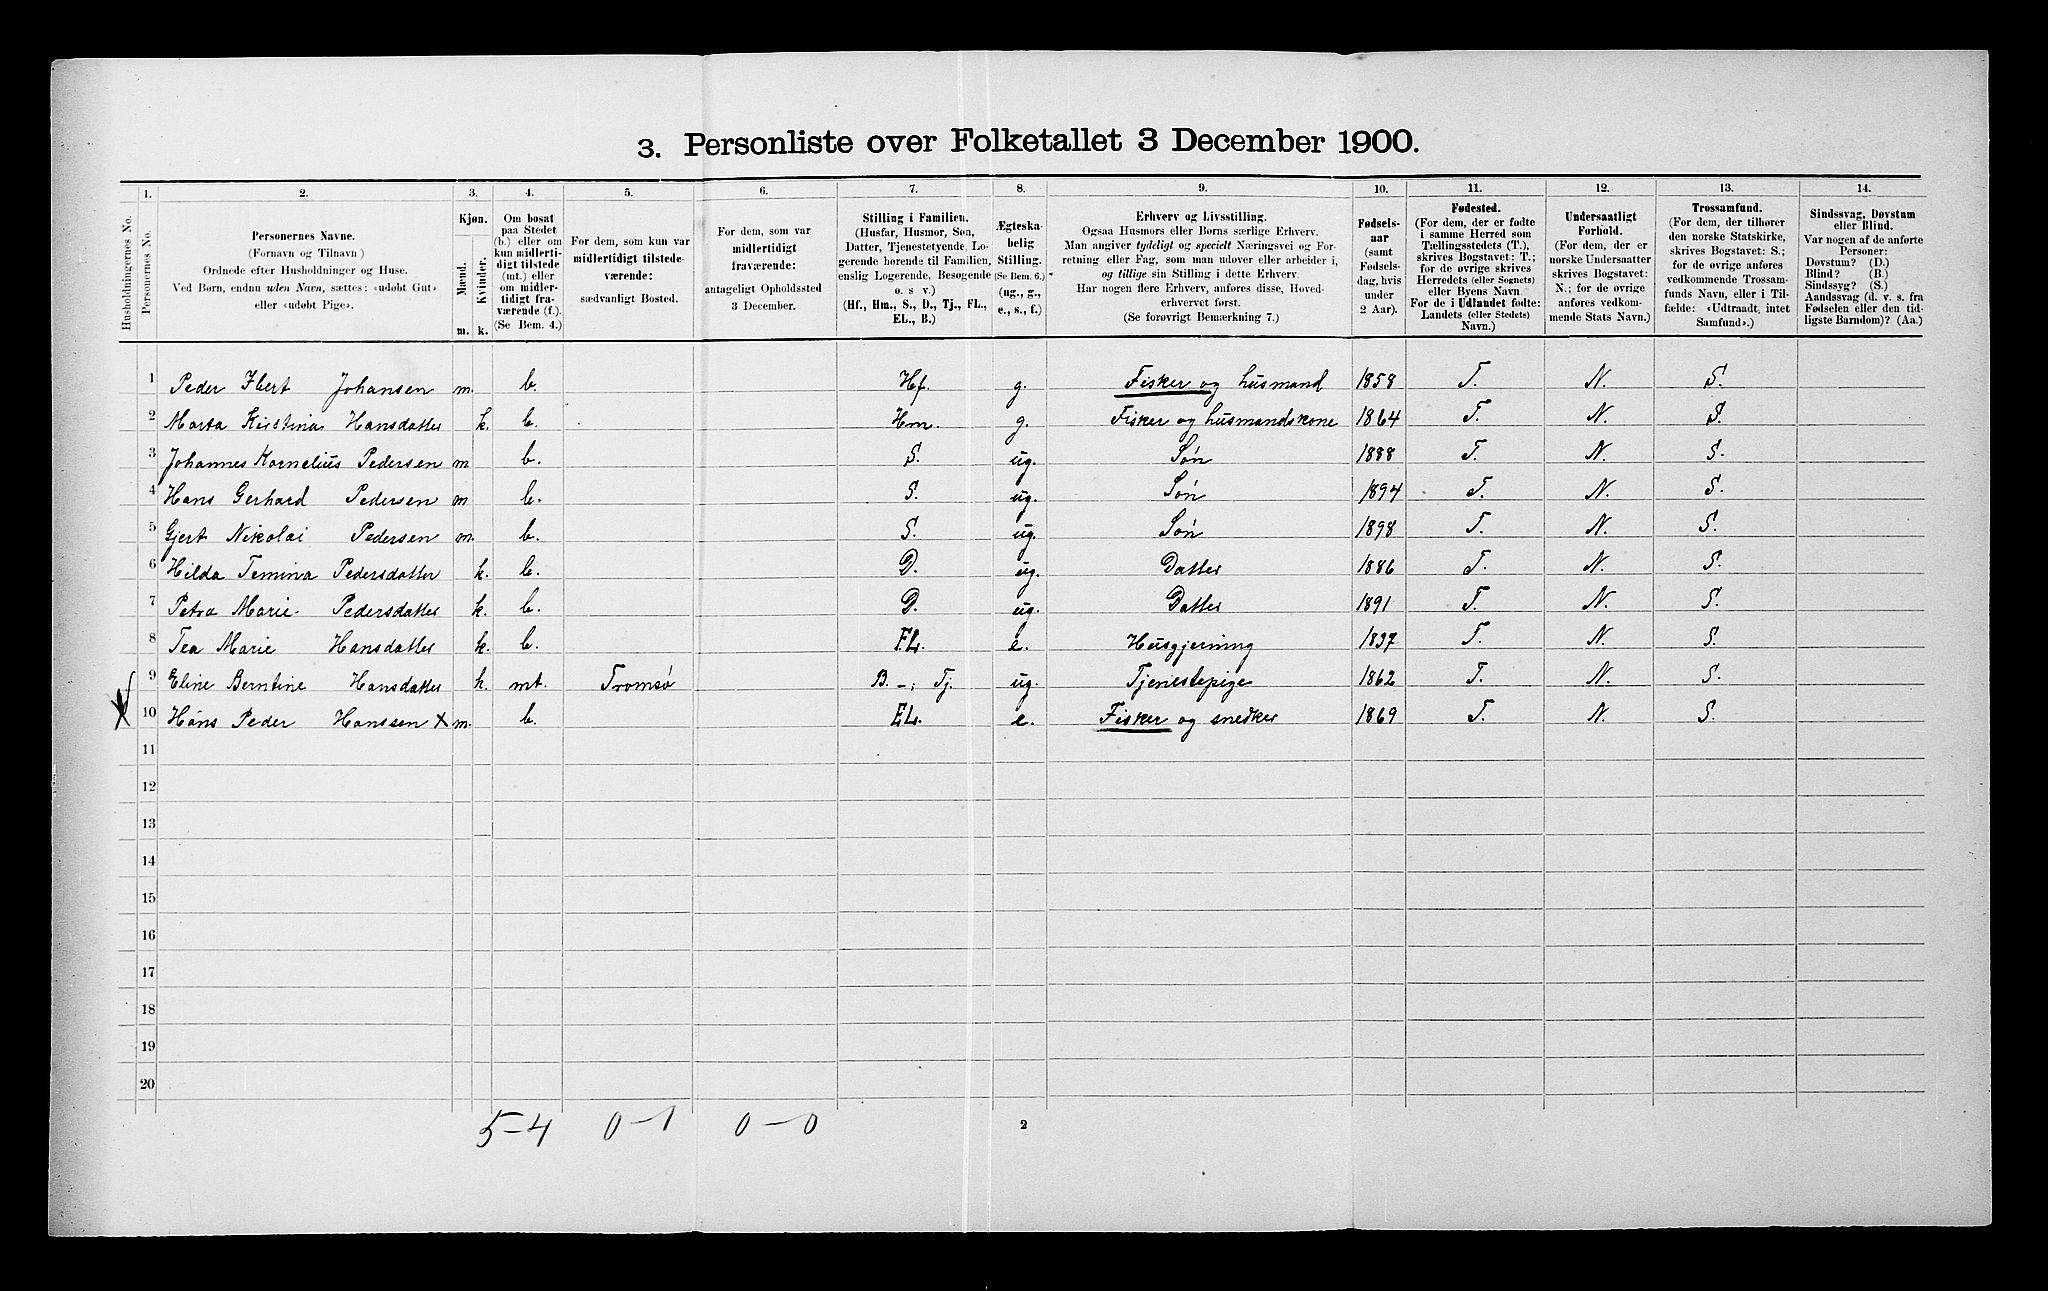 3. Personliste over Folketallet 3 December 1900.
1. 2. 3. 4. 5. 6. 7. 8. 9. 10. 11. 12. 13. 14.
Husholdningernes No.
Personernes No.
Personernes Navne.
(Fornavn og Tilnavn)
Ordnede efter Husholdninger og Huse.
Ved Børn, endnu uden Navn, sættes: «udøbt Gut»
eller «udøbt Pige».
Kjøn.
Mænd. Kvinder.
m. k.
Om bosat
paa Stedet
(b.) eller om
kun midlerti-
digt tilstede
(mt.) eller
om midler-
tidigt fra-
værende (f.).
(Se Bem. 4.)
For dem, som kun var
midlertidigt tilstede-
værende:
sædvanligt Bosted.
For dem, som var
midlertidigt
fraværende:
antageligt Opholdssted
3 December.
Stilling i Familien.
(Husfar, Husmor, Søn,
Datter, Tjenestetyende, Lo-
gerende hørende til Familien,
enslig Logerende, Besøgende
o. s v.)
(Hf., Hm., S., D., Tj., FL.,
EL., B.)
Ægteska-
belig
Stilling.
(Se Bem. 6.)
(ug., g.,
e., s., f.)
Erhverv og Livsstilling.
Ogsaa Husmors eller Børns særlige Erhverv.
Man angiver tydeligt og specielt Næringsvei og For-
retning eller Fag, som man udøver eller arbeider i,
og tillige sin Stilling i dette Erhverv.
Har nogen flere Erhverv, anføres disse, Hoved-
erhvervet først.
(Se forøvrigt Bemærkning 7.)
Fødsels-
aar
(samt
Fødsels-
dag, hvis
under
2 Aar).
Fødested.
(For dem, der er fødte
i samme Herred som
Tællingsstedets (T.),
skrives Bogstavet: T.;
for de øvrige skrives
Herredets (eller Sognets)
eller Byens Navn
For de i Udlandet fødte:
Landets (eller Stedets)
Navn.)
Undersaatligt
Forhold.
(For dem, der er
norske Undersaatter
skrives Bogstavet:
N.; for de øvrige
anføres vedkom-
mende Stats Navn.)
Trossamfund.
(For dem, der tilhører
den norske Statskirke,
skrives Bogstavet: S.;
for de øvrige anføres
vedkommende Trossam-
funds Navn, eller i Til-
fælde: «Udtraadt, intet
Samfund».)
Sindssvag, Døvstum
eller Blind.
Var nogen af de anførte
Personer:
Døvstum? (D.)
Blind? (B.)
Sindssyg? (S.)
Aandssvag (d. v. s. fra
Fødselen eller den tid-
ligste Barndom)? (Aa.)
1 Peder Johansen m. b. Hf. g. Fisker og husmand 1858 T. N. S.
2 Marta Kirstina Hansdatter k. b. Hm. g. Fisker og husmandskone 1864 T. N. S.
3 Johannes Kornelius Pedersen m. b. S. ug. Søn 1888 T. N. S.
4 Hans Gerhard Pedersen m. b. S. ug. Søn 1894 T. N. S.
5 Gjert Nikolai Pedersen m. b. S. ug. Søn 1898 T. N. S.
6 Hilda Temina Pedersdatter k. b. D. ug. Datter 1886 T. N. S.
7 Petra Marie Pedersdatter k. b. D. ug. Datter 1891 T. N. S.
8 Tea Marie Hansdatter k. b. FL. e. Husgjerning 1837 T. N. S.
9 Eline Berntine Hansdatter k. mt. Tromsø B. -; Tj. ug. Tjenestepige 1862 T. N. S.
10 Hans Peder Hanssen x m. b. EL. e. Fisker og snedker 1869 T. N. S.
11
12
13
14
15
16
17
18
19
20
5-4 0-1 0-0 2